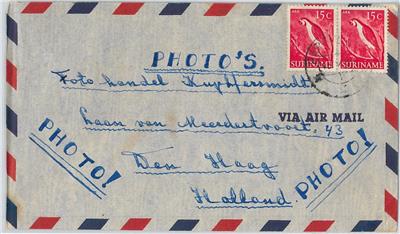 15c ARA SURINAME
15c ARA SURINAME
PHOTO'S.
Foto handel Kuyhfersmidt
VIA AIR MAIL
Laan van Meerdertvoort, 43
PHOTO!
Den Haag
Holland
PHOTO!